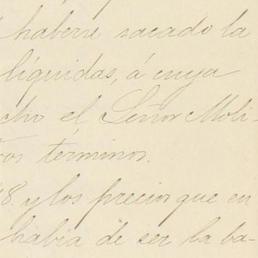 haberse sacado la
liquidas, á cuya
cho el Señor Moli-
ros términos.
8 y los precios que en
habia de ser la ba-